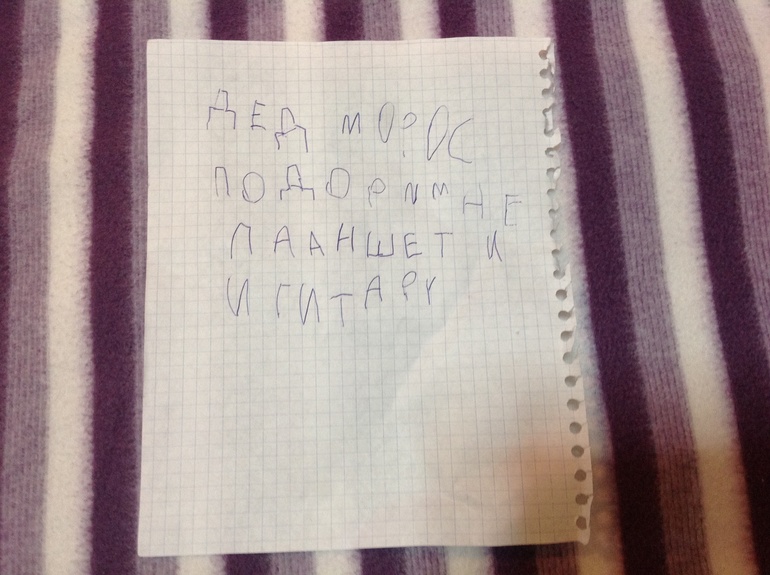 ДЕД МОРОС
ПОДОРИ МНЕ
ПЛАНШЕТ И
И ГИТАРУ